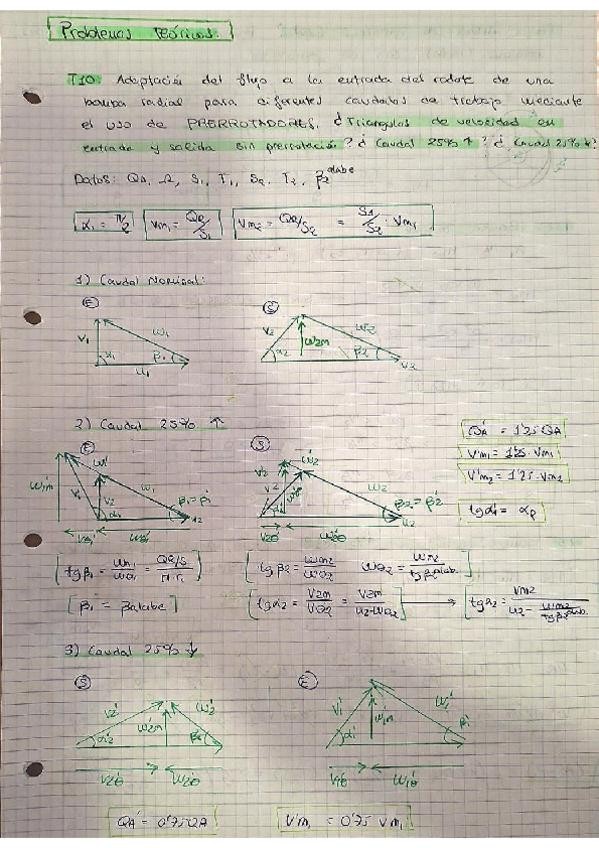 Problemas teóricos.
T10. Adaptación del flujo a la entrada del rodete de una
bomba radial para diferentes caudales de trabajo mediante
el uso de PRERROTADORES. ¿Triangulos de velocidad en
entrada y salida sin prerrotación? ¿Caudal 25% ↑? ¿Caudal 25% ↓?
Datos: QA, Ω, S1, r1, S2, r2, β2 álabe
α1 = π/2
Vm1 = QR/S1
Vm2 = QR/S2 = S1/S2 · Vm1
1) Caudal Nominal:
E
V1
W1
α1
β1
u1
S
V2
W2
W2m
α2
β2
2) Caudal 25% ↑
E
W1
V1'
β1 = β1'
S
V2'
W2'
W2
β2 = β2'
u2
QA' = 1'25QA
V'm1 = 1'25 · Vm1
V'm2 = 1'25 · Vm2
[β1 = β1alabe]
tgα2 = V2m/V2θ = V2m/u2-Wθ2
3) Caudal 25% ↓
S
V2'
W2'
W2m'
α2'
β2
V2θ'
W2θ'
E
V1'
W1'
W1m'
α1'
β1'
V1θ'
W1θ'
QA' = 0'75QA
V'm1 = 0'75 Vm1